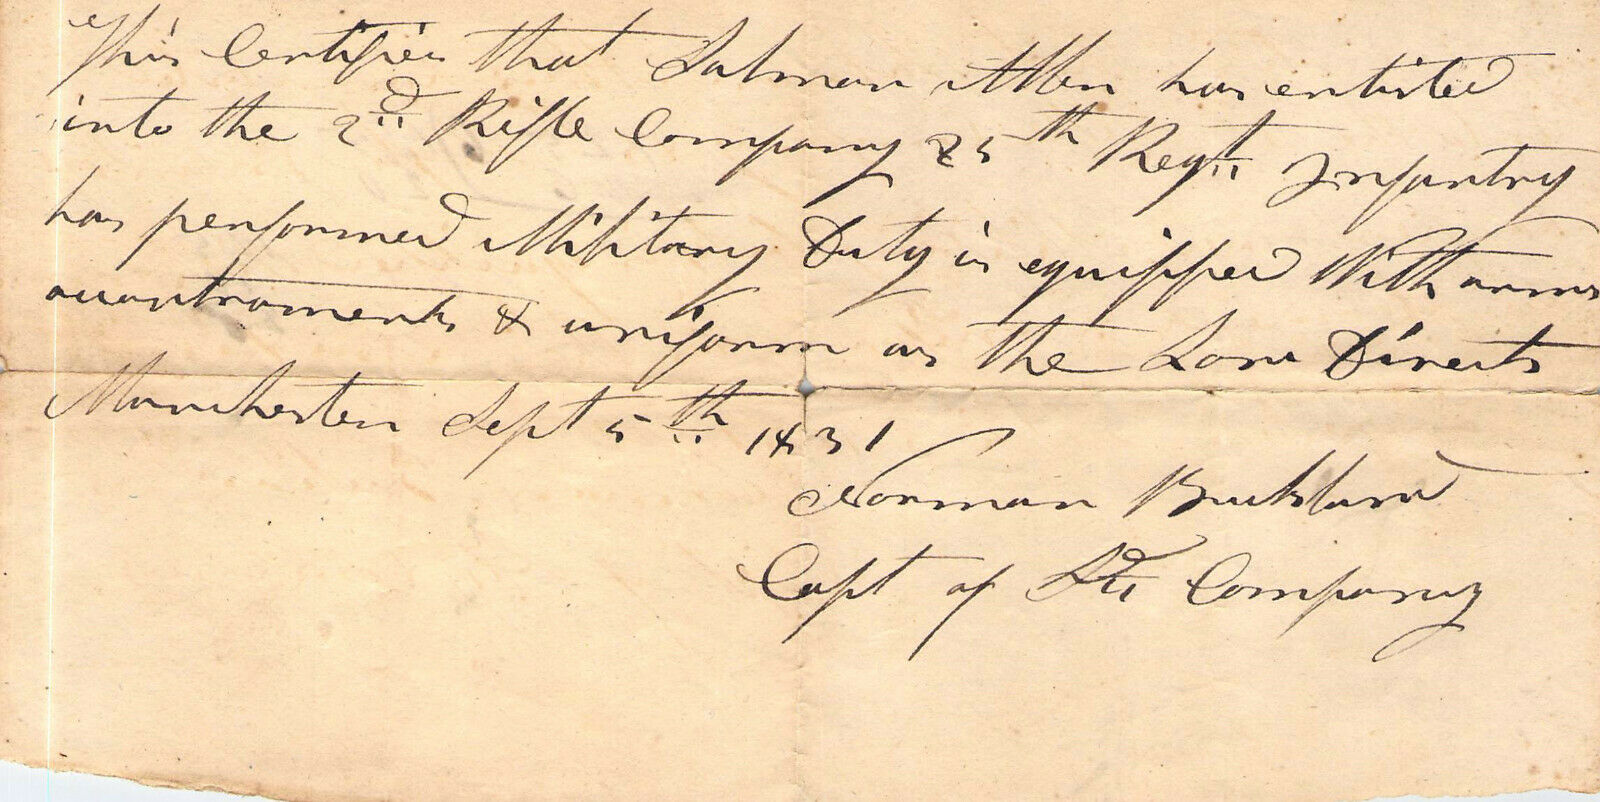 This Certifies that Salmon Allen has entisted
into the 2nd Rifle Company 25th Regt Infantry
has performed Military Duty is equipped With arms
accoutraments & uniform as the Law Directs
Manchester Sept 5th 1831
Norman Buckland
Capt of Sd Company